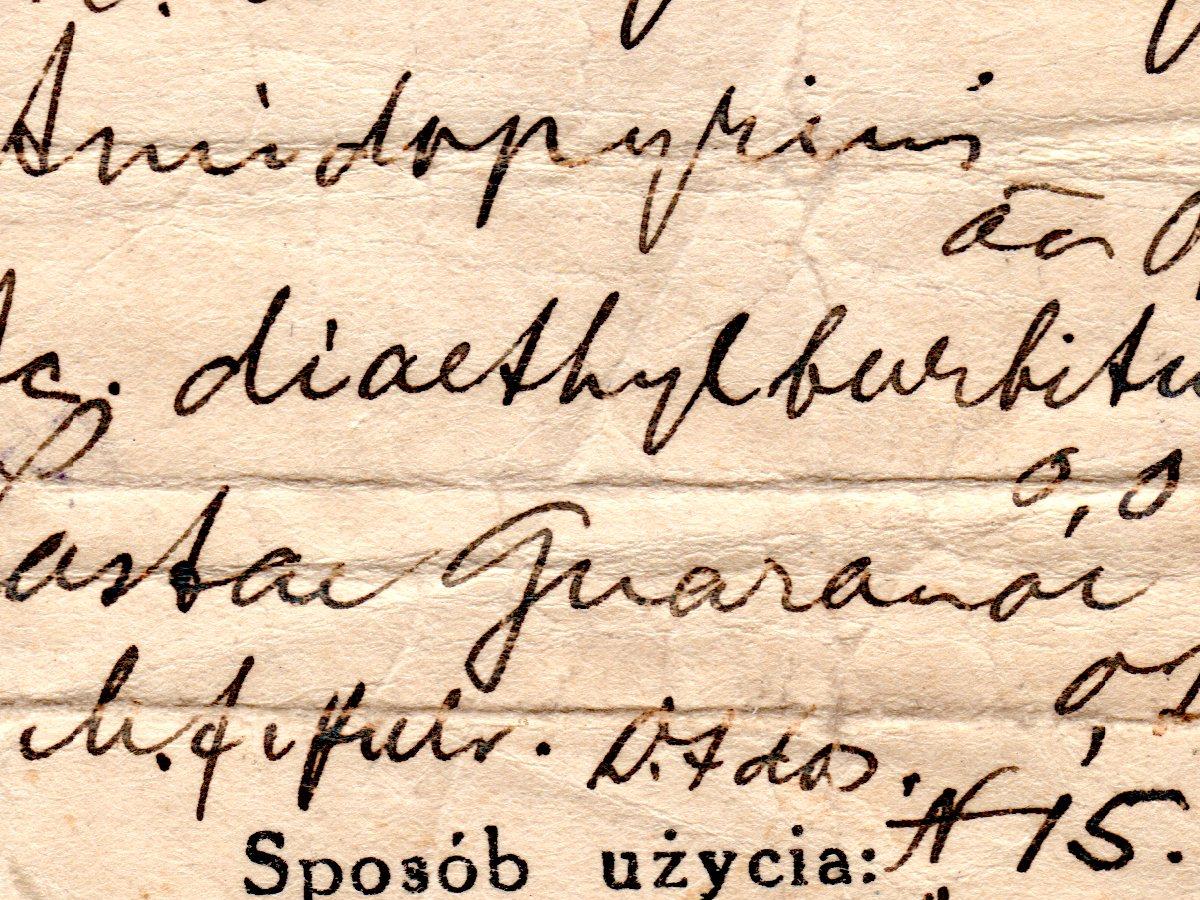 Amidopyrini
āā
Ac. diaethylbarbitu
0,0
Pastae Guaranae
0,
M.f. pulv. D.t dos.
N 15.
Sposób użycia: